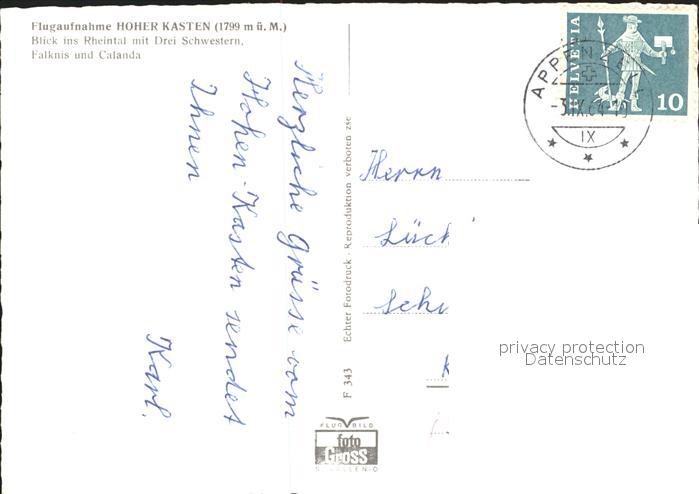 Flugaufnahme HOHER KASTEN (1799 m ü. M.)
Blick ins Rheintal mit Drei Schwestern,
Falknis und Calanda
Herzliche Grüsse vom
Hohen-Kasten sendet
Ihnen
Karl.
F 343 Echter Fotodruck - Reproduktion verboten zse
FLUGBILD
foto
Gross
ST. GALLEN-O
HELVETIA
10
APPENZELL
-3.IX.64-19
IX
Herrn
privacy protection
Datenschutz